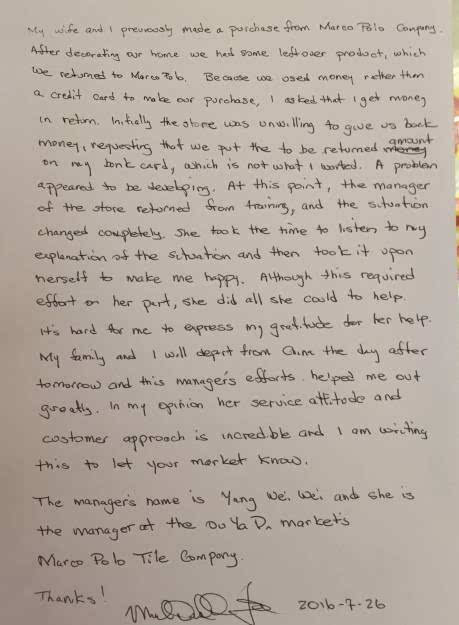 My wife and I previously made a purchase from Marco Polo Company.
After decorating our home we had some left over product, which
we returned to Marco Polo. Because we used money rather then
a credit card to make our purchase, I asked that I get money
in return. Initially the store was unwilling to give us back
money, requesting that we put the to be returned amount
on my bank card, which is not what I wanted. A problem
appeared to be developing. At this point, the manager
of the store returned from training, and the situation
changed completely. She took the time to listen to my
explanation of the situation and then took it upon
herself to make me happy. Although this required
effort on her part, she did all she could to help.
It's hard for me to express my gratitude for her help.
My family and I will depart from China the day after
tomorrow and this manager's efforts helped me out
greatly. In my opinion her service attitude and
customer approach is incredible and I am writing
this to let your market know.
The manager's name is Yang Wei Wei and she is
the manager at the Ou Ya Da market's
Marco Polo Tile Company.
Thanks!
2016-7-26